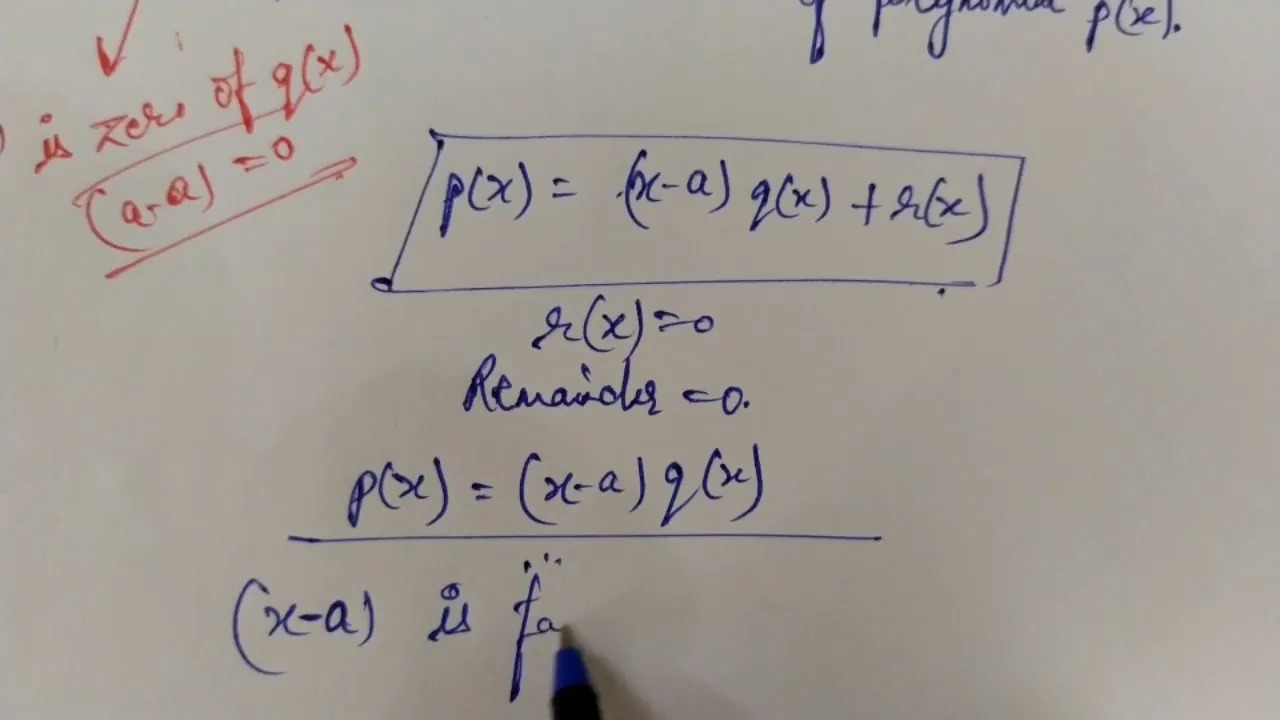 of polynomial p(x).
is zero of q(x)
(a-a) = 0
p(x) = (x-a) q(x) + r(x)
r(x) = 0
Remainder = 0.
p(x) = (x-a) q(x)
(x-a) is fa